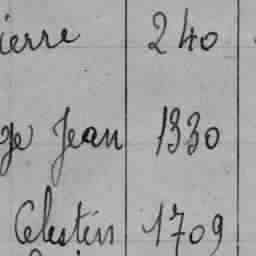 ierre 240
ge Jean 1330
Celestin 1709